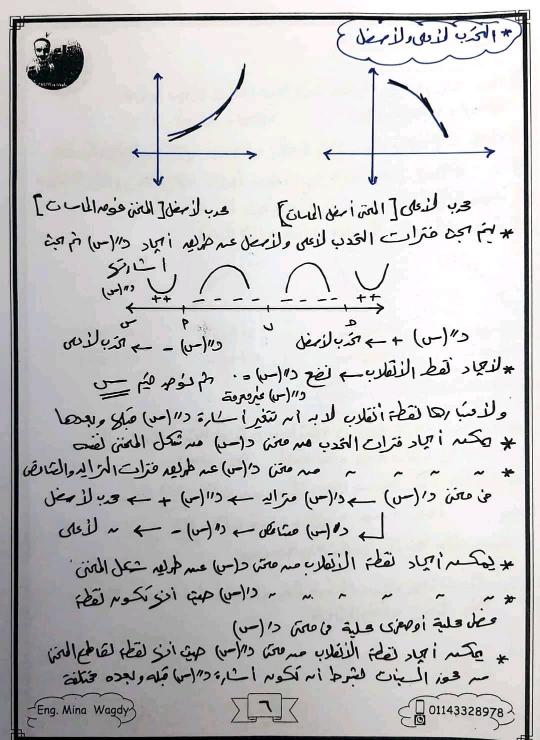 * التحدب لأعلى ولأسفل
محدب لأعلى [المنحنى أسفل المماسات]
محدب لأسفل [المنحنى فوق المماسات]
* يتم بحث فترات التحدب لأعلى ولأسفل عن طريق أيجاد د"(س) ثم بحث
أشارتها
د"(س)
++ - - - - - - - - ++
س
د"(س) + ← تحدب لأسفل
د"(س) - ← تحدب لأعلى
* لأيجاد نقط الأنقلاب ← نضع د"(س) = ٠ ثم نوجد قيم س
د"(س) غير معرفة
ولأختبارها نقطة أنقلاب لابد أن تتغير أشارة د"(س) قبلها وبعدها
* يمكن أيجاد فترات التحدب من منحنى د(س) من شكل المنحنى نفسه
* " " " " من منحنى د'(س) عن طريق فترات التزايد والتناقص
فى منحنى د'(س) ← د'(س) متزايد ← د"(س) + ← محدب لأسفل
د'(س) متناقص ← د"(س) - ← " لأعلى
* يمكن أيجاد نقطة الأنقلاب من منحنى د(س) عن طريق شكل المنحنى
* " " " " " د'(س) حيث أنها تكون نقطة
عظمى محلية أو صغرى محلية فى منحنى د'(س)
* يمكن أيجاد نقطة الأنقلاب من منحنى د"(س) حيث أنها نقطة تقاطع المنحنى
من محور السينات بشرط أن تكون أشارة د"(س) قبله وبعده مختلفة
Eng. Mina Wagdy
٦
01143328978